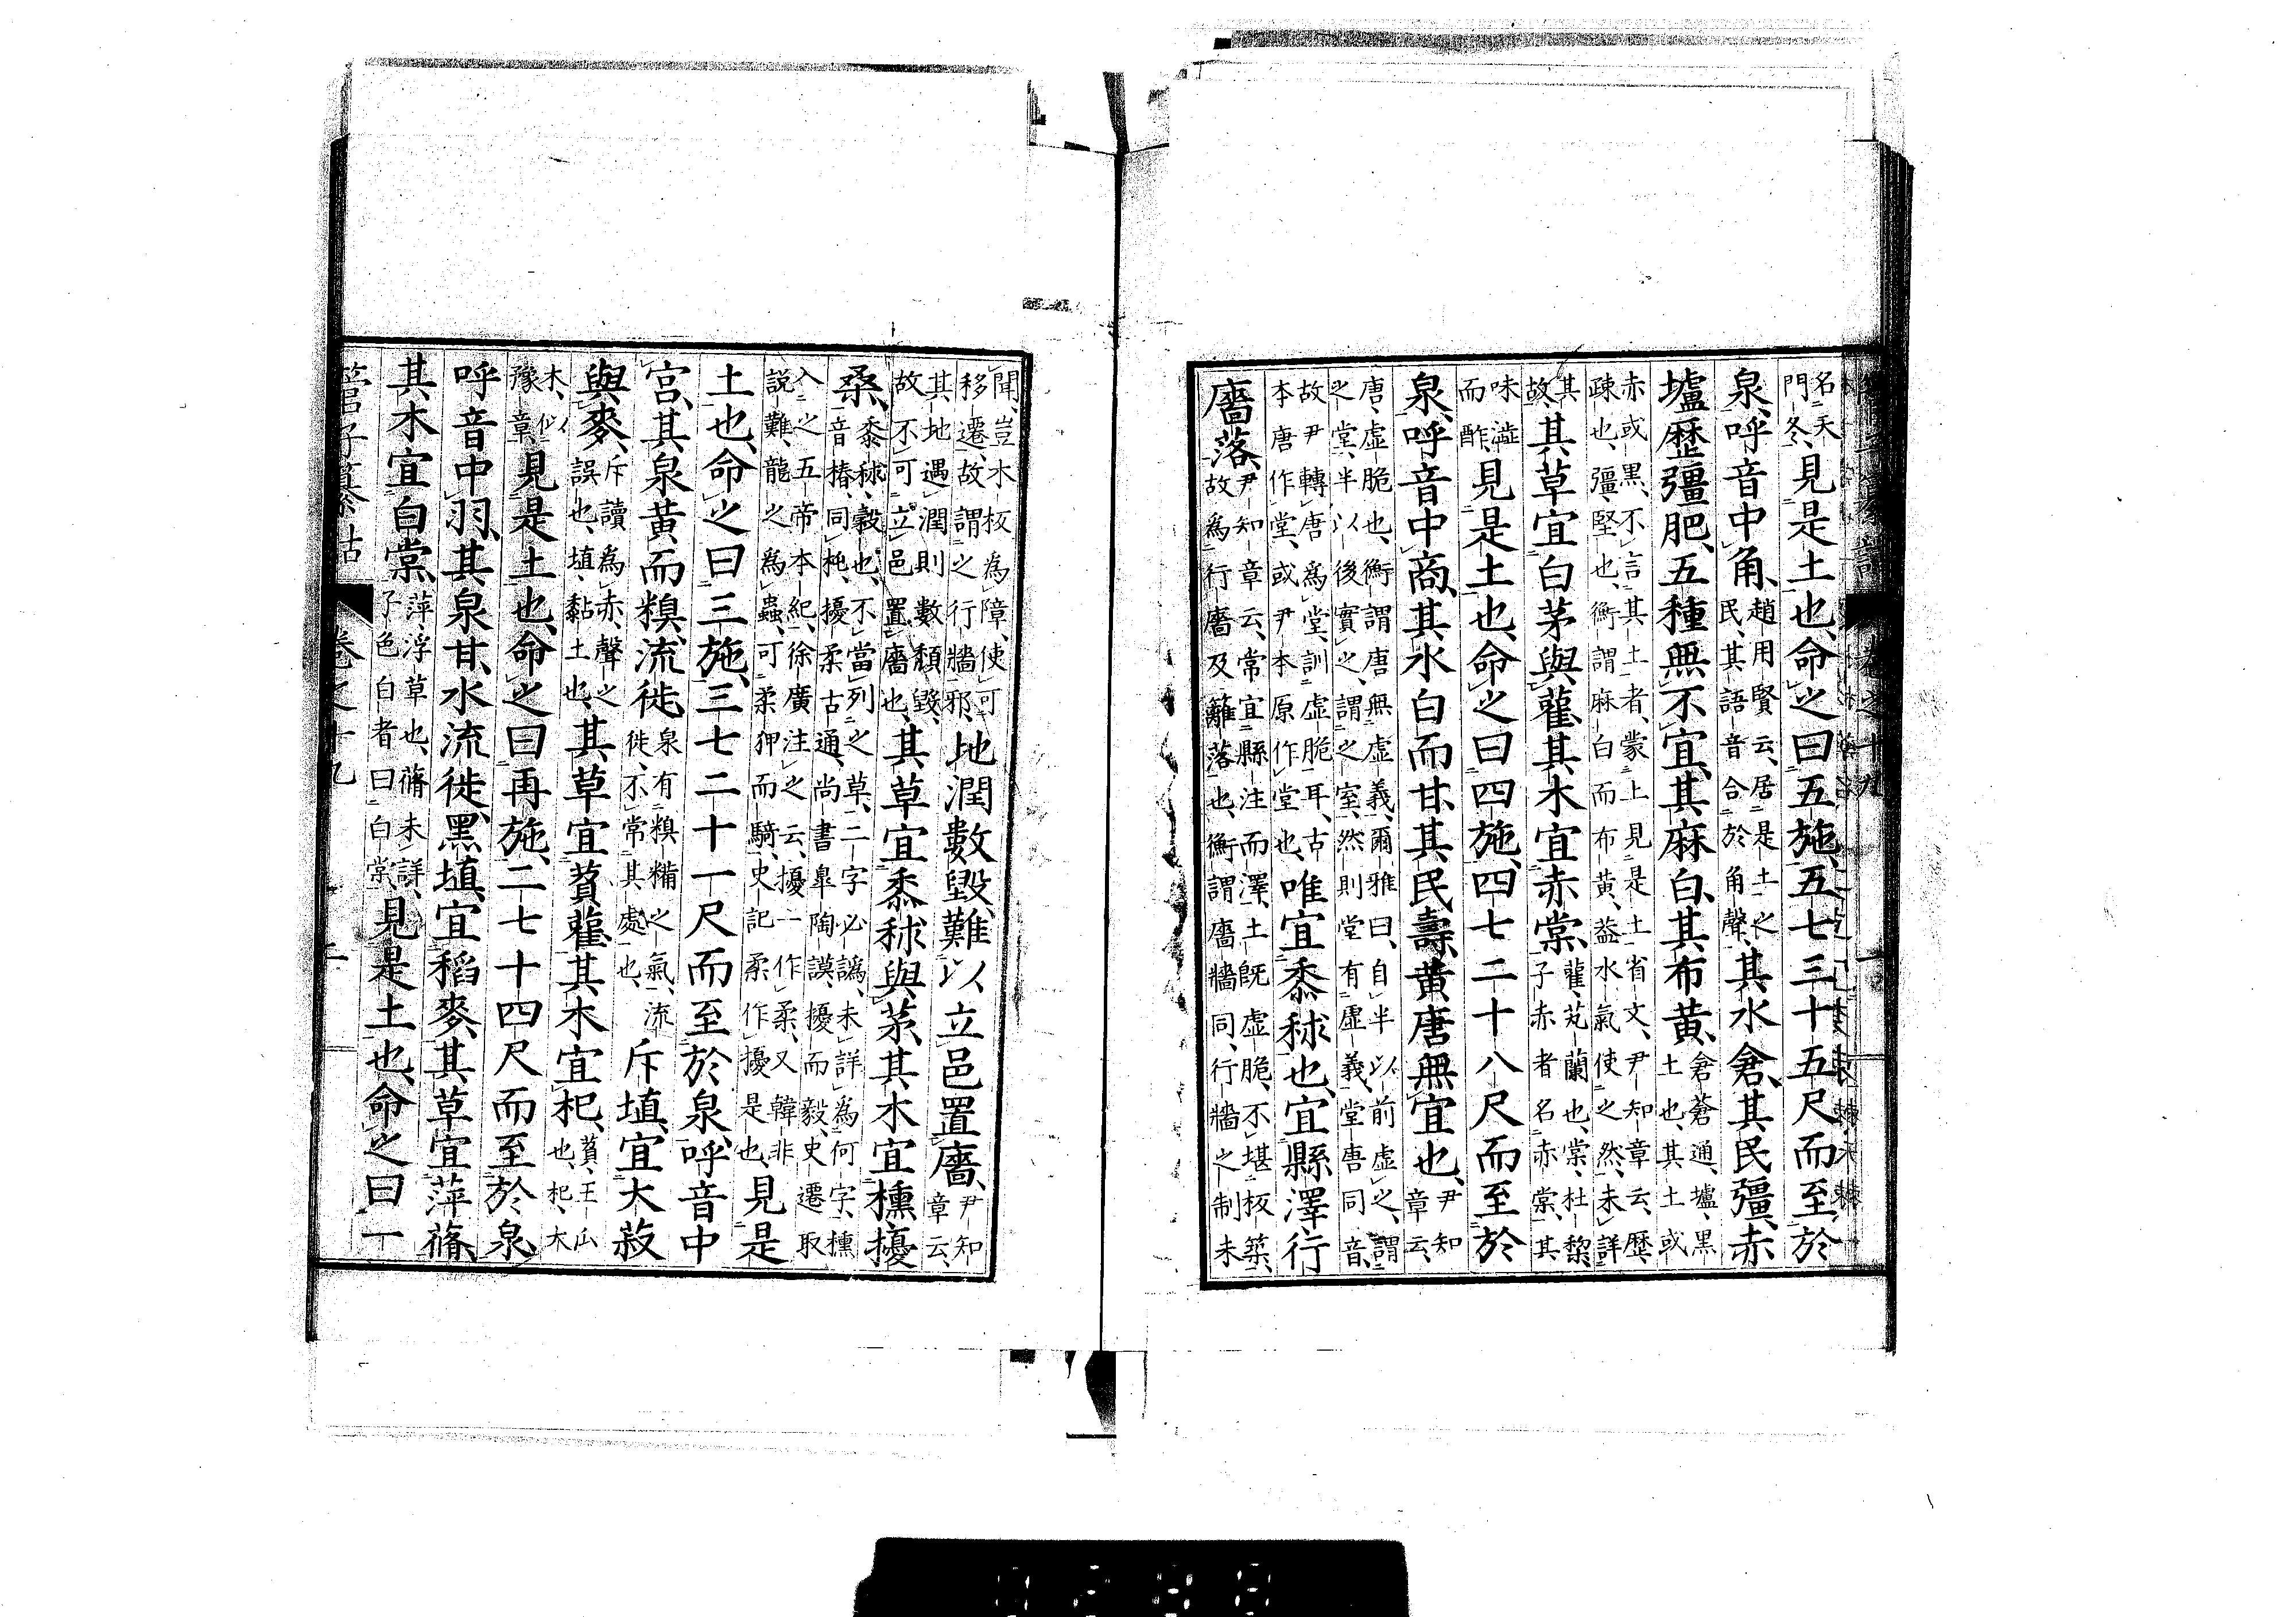 名天門冬、見是土也、命之曰五施、五七三十五尺而至於
泉、呼音中角、趙用賢云、居是土之民、其語音合於角聲、其水倉、其民彊、赤
壚歷彊肥、五種無不宜、其麻白、其布黃、倉蒼通、壚、黑土也、其土或
赤或黑、不言其土者、蒙上見是土省文、尹知章云、歷疎也、彊、堅也、衡謂麻白而布黃、益水氣使之然、未詳
其故、其草宜白茅與雚、其木宜赤棠、雚、芄蘭也、棠、杜黎子赤者名赤棠、其
味澁而酢、見是土也、命之曰四施、四七二十八尺而至於
泉、呼音中商、其水白而甘、其民壽、黃唐無宜也、尹知章云、
唐、虛脆也、衡謂唐無虛義、爾雅曰、自半以前虛之、謂之堂、半以後實之、謂之室、然則堂有虛義、堂唐同音、
故尹轉唐爲堂、訓虛脆耳、古本唐作堂、或尹本原作堂也、唯宜黍秫也、宜縣澤、行
廧落、尹知章云、常宜縣注而澤、土既虛脆、不堪板築、故爲行廧及籬落也、衡謂廧牆同、行牆之制未
聞、豈木板爲障、使可移遷、故謂之行牆邪、地潤數毀、難以立邑置廧、尹知章云、
其地遇潤則數頽毀、故不可立邑置廧也、其草宜黍秫與茅、其木宜櫄擾
桑、黍秫、穀也、不當列之草、二字必譌、未詳爲何字、櫄音椿、同杶、擾柔古通、尚書皐陶謨、擾而毅、史遷取
入之五帝本紀、徐廣注之云、擾一作柔、又韓非說難、龍之爲蟲、可柔狎而騎、史記柔作擾是也、見是
土也、命之曰三施、三七二十一尺而至於泉、呼音中
宮、其泉黃而糗、流徙、泉有糗糒之氣、流徙、不常其處也、斥埴、宜大菽
與麥、斥讀爲赤、聲之誤也、埴、黏土也、其草宜萯雚、其木宜杞、萯、王山也、杞、木
木、似豫章、見是土也、命之曰再施、二七十四尺而至於泉、
呼音中羽、其泉甘、水流徙、黑埴、宜稻麥、其草宜萍蓨、
其木宜白棠、萍、浮草也、蓨未詳、子色白者曰白棠、見是土也、命之曰一
管子纂詁 卷之十九